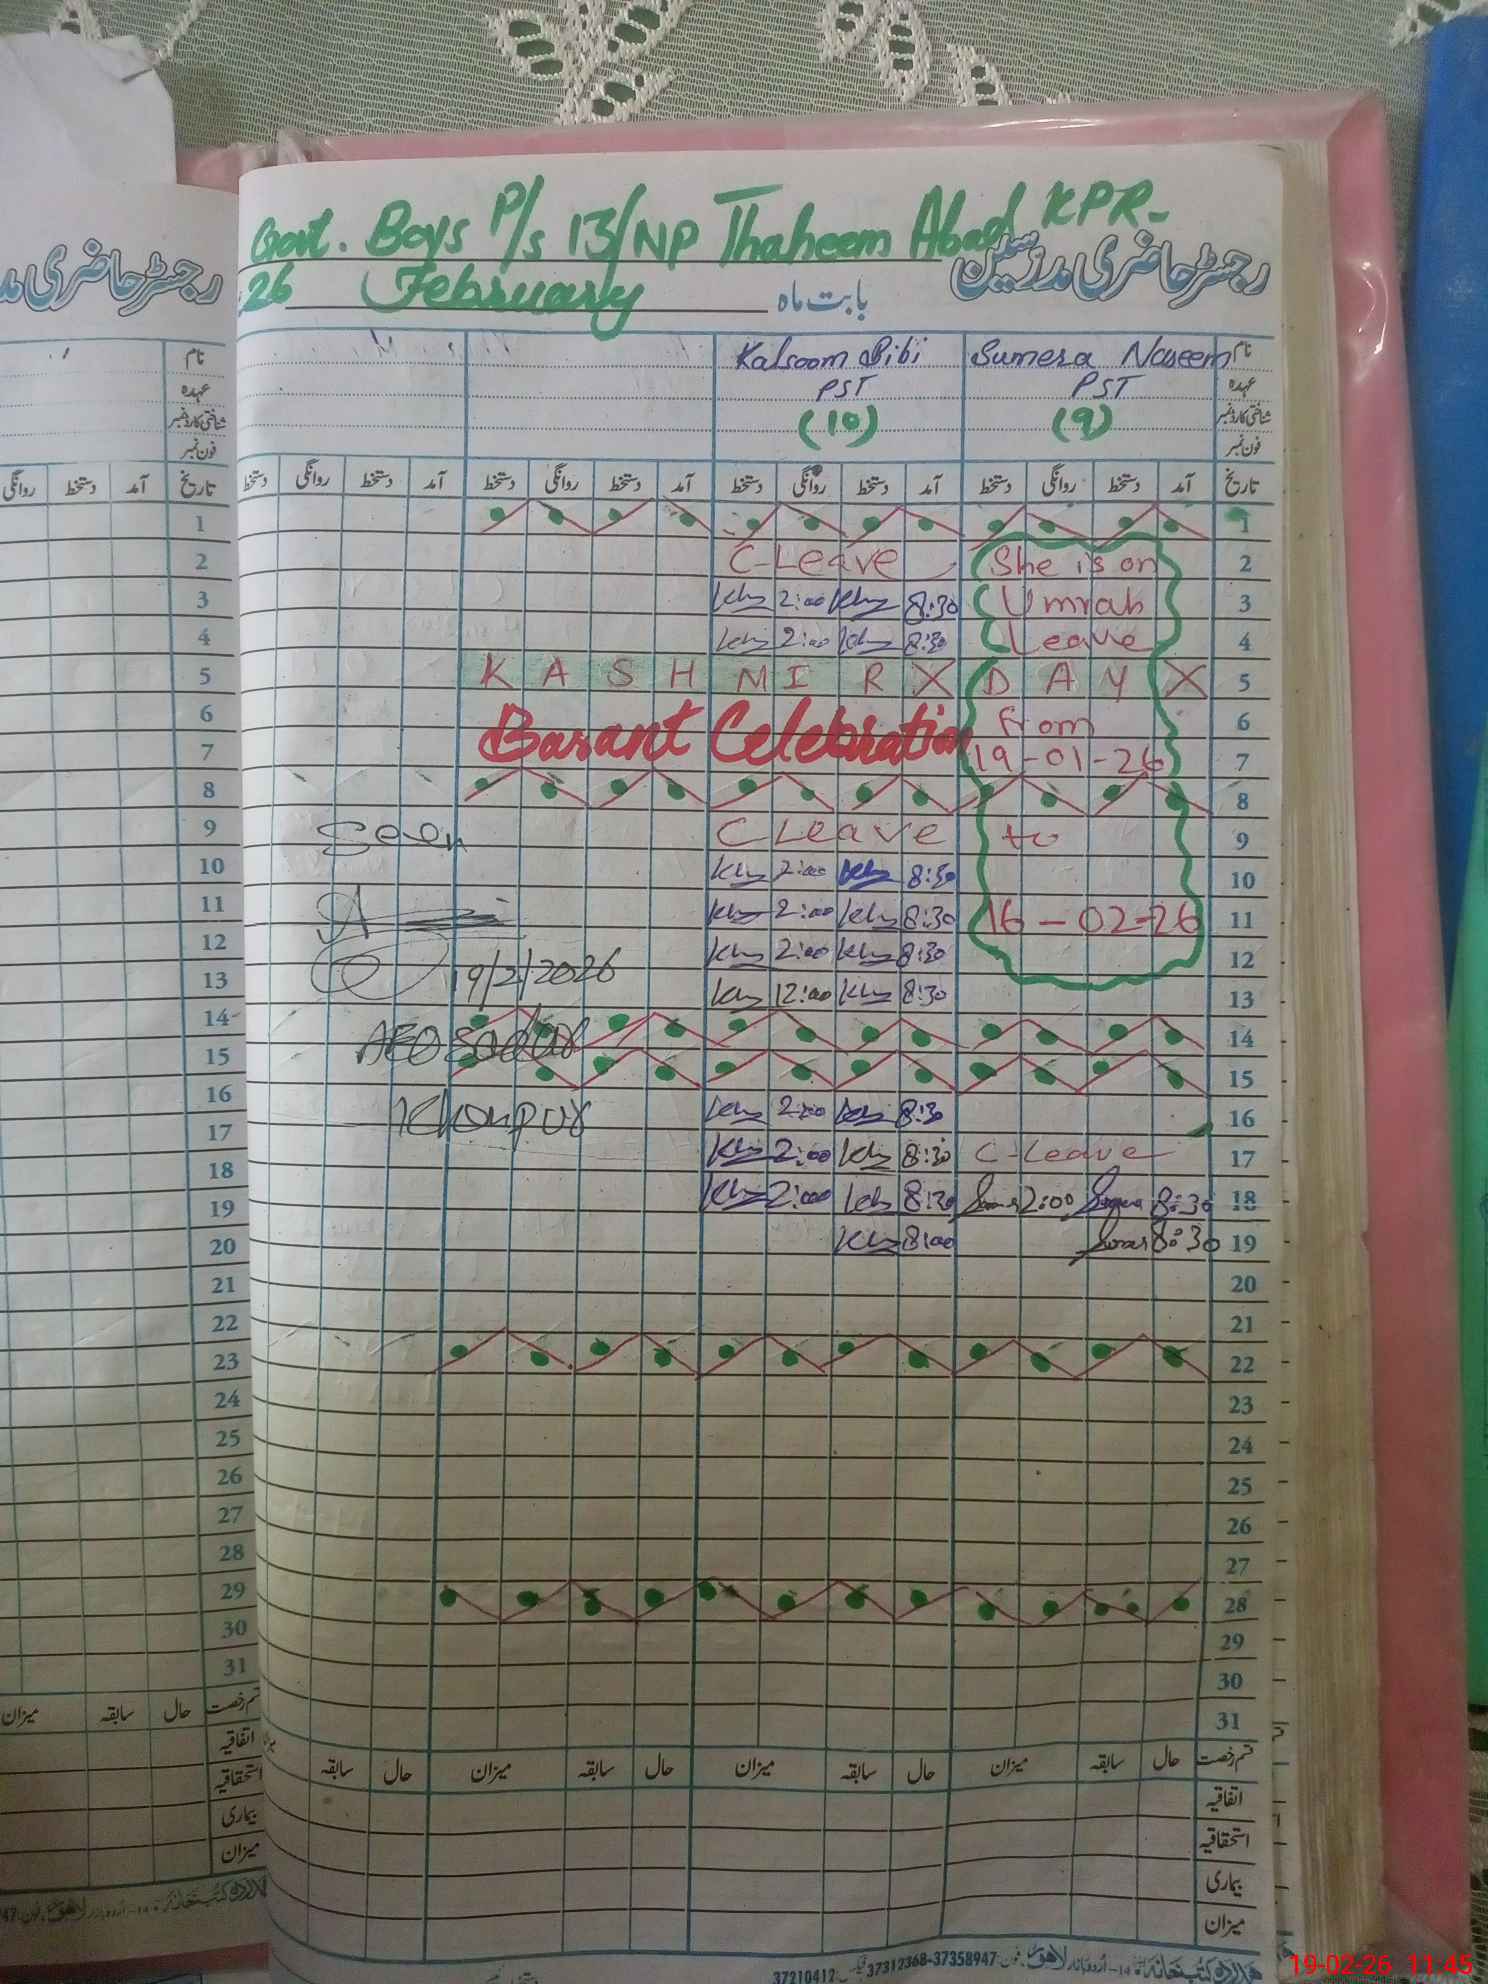 Govt. Boys P/s 13/NP Thaheem Abad KPR-
رجسٹر حاضری مدرسین
26 February بابت ماہ
نام Sumera Naseem Kalsoom Bibi
عہدہ PST PST
شناختی کارڈ نمبر (9) (10)
فون نمبر
تاریخ آمد دستخط روانگی دستخط آمد دستخط روانگی دستخط آمد دستخط روانگی دستخط آمد دستخط روانگی دستخط
1
2 She is on C-Leave
3 Umrah 8:30 2:00
4 Leave 8:30 2:00
5 KASHMIR X DAY X
6 From
Basant Celebration
7 19-01-26
8
9 to C Leave
Seen
10 8:30 2:00
11 16-02-26 8:30 2:00
12 8:30 2:00
19/2/2026
13 8:30 12:00
14
AEO Sadar
15
Khanpur
16 8:30 2:00
17 C-Leave 8:30 2:00
18 8:30 2:00 8:30 2:00
19 8:30 8:00
20
21
22
23
24
25
26
27
28
29
30
31
قسم رخصت حال سابقہ میزان حال سابقہ میزان حال سابقہ میزان حال سابقہ
اتفاقیہ
استحقاقیہ
بیماری
میزان
لاہور فون: 37358947-37312368 فیکس: 37210412
رجسٹر حاضری مد
نام
عہدہ
شناختی کارڈ نمبر
فون نمبر
تاریخ آمد دستخط روانگی
1
2
3
4
5
6
7
8
9
10
11
12
13
14
15
16
17
18
19
20
21
22
23
24
25
26
27
28
29
30
31
قسم رخصت حال سابقہ میزان
اتفاقیہ
استحقاقیہ
بیماری
میزان
19-02-26 11:45